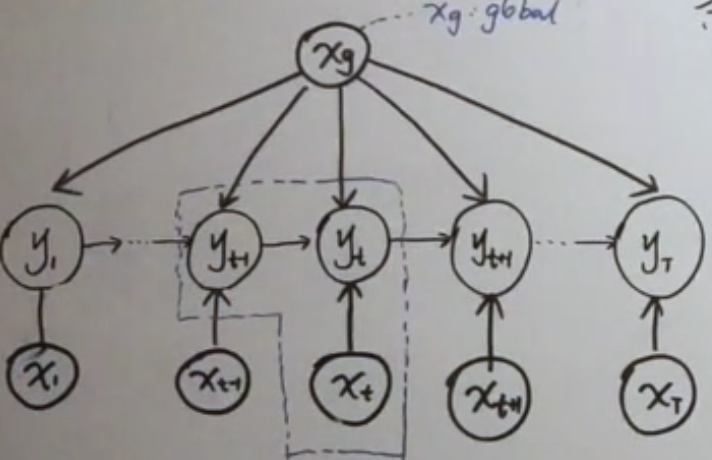 xg: global
xg
y₁ yt-1 yt yt+1 yT
x₁ xt-1 xt xt+1 xT